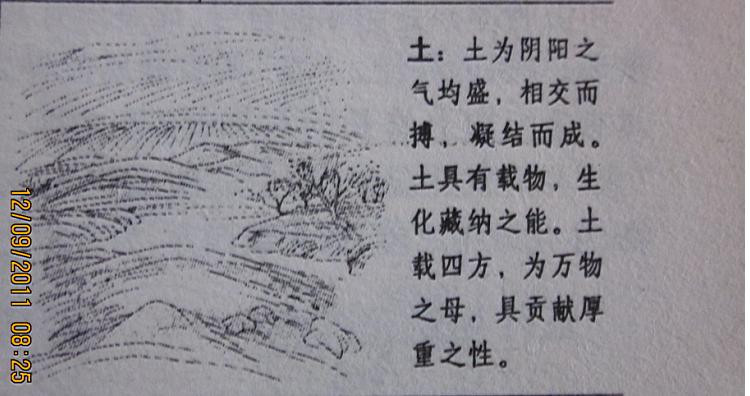 土：土为阴阳之
气均盛，相交而
搏，凝结而成。
土具有载物，生
化藏纳之能。土
载四方，为万物
之母，具贡献厚
重之性。
12/09/2011 08:25